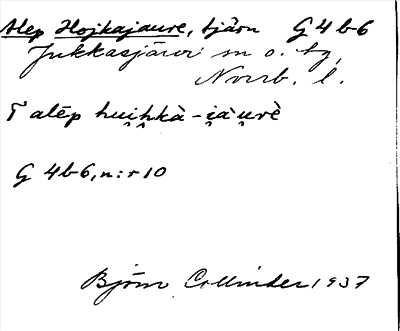 Alep Hojkajaure, tjärn G 4 b-6
Jukkasjärvi sn o. tg,
Norrb. l.
F alēp hui̯h̭kà-i̯àu̯rè
G 4b-6, n:r 10
Björn Collinder 1937